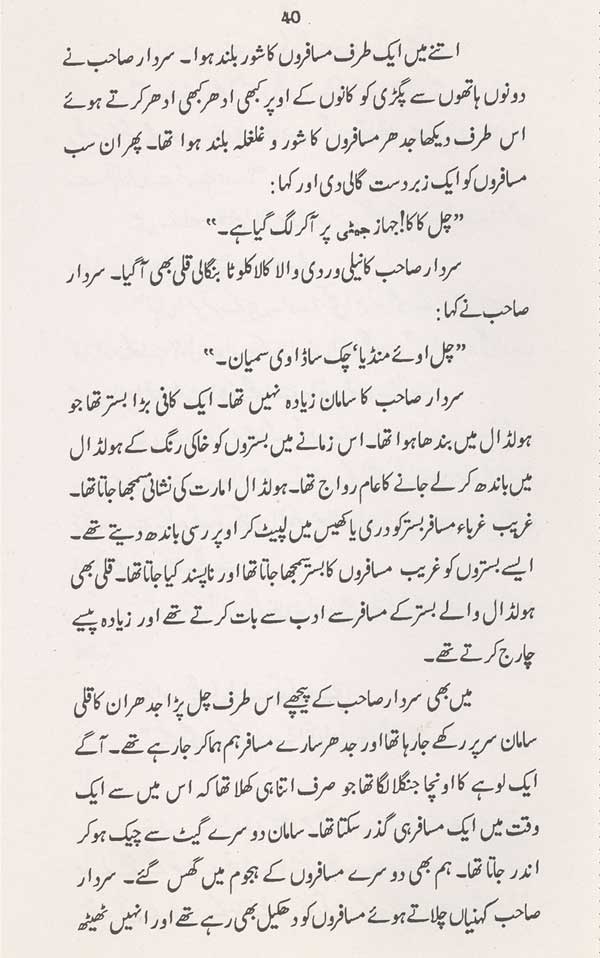 40
اتنے میں ایک طرف مسافروں کا شور بلند ہوا۔ سردار صاحب نے
دونوں ہاتھوں سے پگڑی کو کانوں کے اوپر کبھی ادھر کبھی ادھر کرتے ہوئے
اس طرف دیکھا جدھر مسافروں کا شور و غلغلہ بلند ہوا تھا۔ پھر ان سب
مسافروں کو ایک زبردست گالی دی اور کہا:
”چل کاکا! جہاز جمٹی پر آ کر لگ گیا ہے۔“
سردار صاحب کا نیلی وردی والا کالا کلوٹا بنگالی قلی بھی آ گیا۔ سردار
صاحب نے کہا:
”چل اوئے منڈیا‘ چک ساڈا وی سمیان۔“
سردار صاحب کا سامان زیادہ نہیں تھا۔ ایک کافی بڑا بستر تھا جو
ہولڈال میں بندھا ہوا تھا۔ اس زمانے میں بستروں کو خاکی رنگ کے ہولڈال
میں باندھ کر لے جانے کا عام رواج تھا۔ ہولڈال امارت کی نشانی سمجھا جاتا تھا۔
غریب غرباء مسافر بستر کو دری یا کھیس میں لپیٹ کر اوپر رسی باندھ دیتے تھے۔
ایسے بستروں کو غریب مسافروں کا بستر سمجھا جاتا تھا اور ناپسند کیا جاتا تھا۔ قلی بھی
ہولڈال والے بستر کے مسافر سے ادب سے بات کرتے تھے اور زیادہ پیسے
چارج کرتے تھے۔
میں بھی سردار صاحب کے پیچھے اس طرف چل پڑا جدھر ان کا قلی
سامان سر پر رکھے جا رہا تھا اور جدھر سارے مسافر ہم ہما کر جا رہے تھے۔ آگے
ایک لوہے کا اونچا جنگلا لگا تھا جو صرف اتنا ہی کھلا تھا کہ اس میں سے ایک
وقت میں ایک مسافر ہی گذر سکتا تھا۔ سامان دوسرے گیٹ سے چیک ہو کر
اندر جاتا تھا۔ ہم بھی دوسرے مسافروں کے ہجوم میں گھس گئے۔ سردار
صاحب کہنیاں چلاتے ہوئے مسافروں کو دھکیل بھی رہے تھے اور انہیں ٹھیٹھ